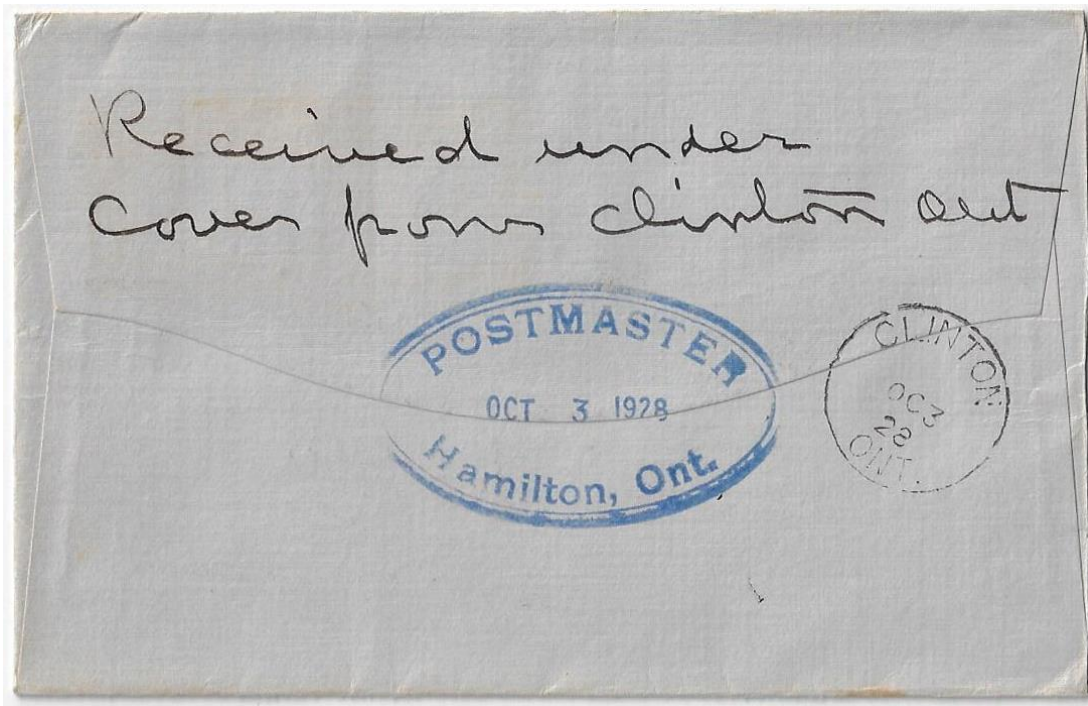 Received under
Cover from Clinton Ont
POSTMASTER
OCT 3 1928
Hamilton, Ont.
CLINTON
OC 3
28
ONT.